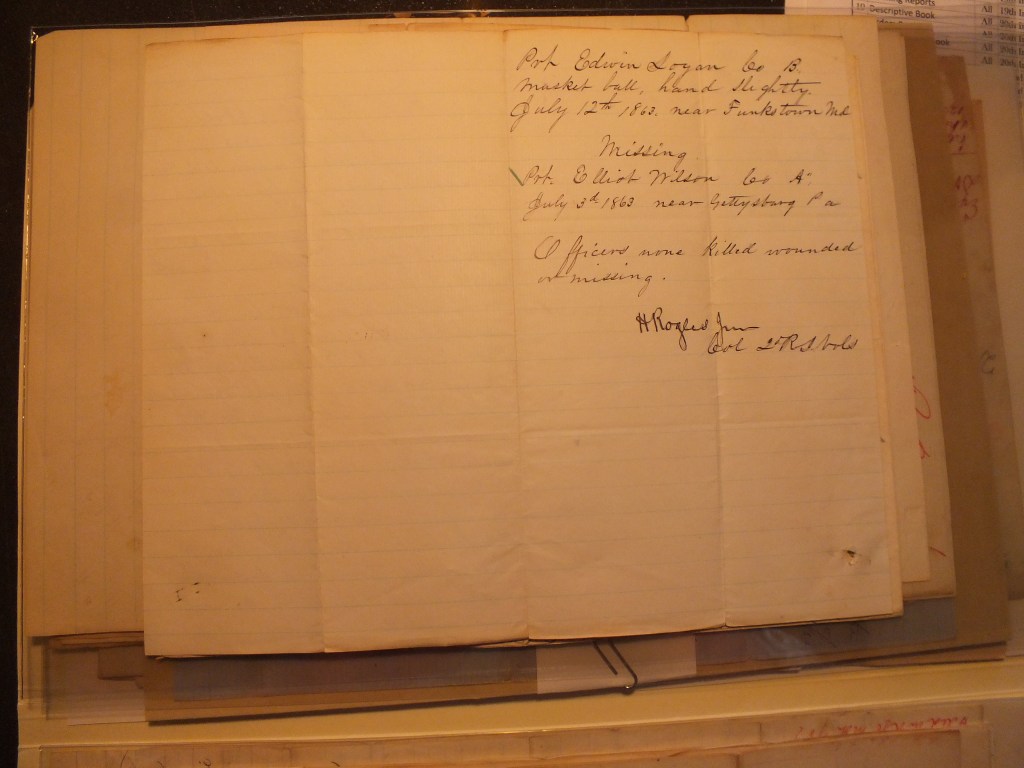 Reports
10 Descriptive Book
All
19th
All
All
Prt Edwin Logan Co B.
Musket ball, hand slightly.
July 12th 1863. near Funkstown Md
Missing
Prt. Elliot Wilson Co A.
July 3d 1863 near Gettysburg Pa
Officers none killed wounded
or missing.
H Rogers Jun
Col 2d R I Vols